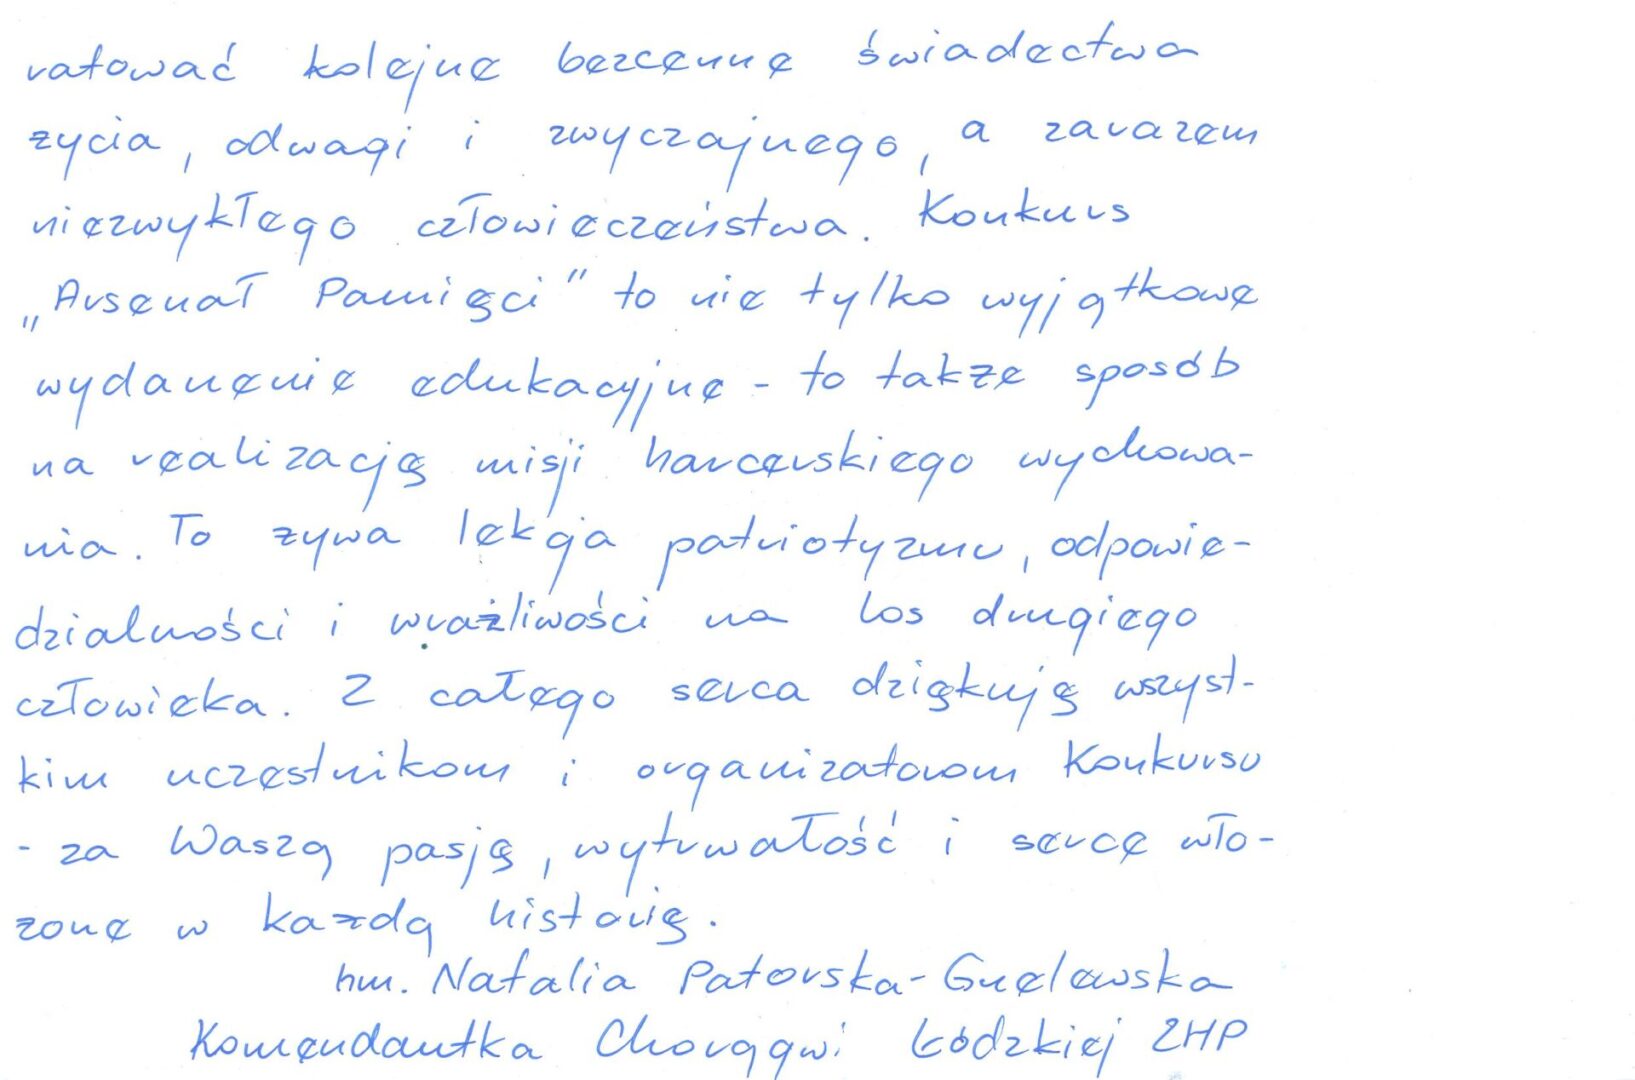 ratować kolejne bezcenne świadectwa
życia, odwagi i zwyczajnego, a zarazem
niezwykłego człowieczeństwa. Konkurs
„Arsenał Pamięci” to nie tylko wyjątkowe
wydarzenie edukacyjne - to także sposób
na realizację misji harcerskiego wychowa-
nia. To żywa lekcja patriotyzmu, odpowie-
dzialności i wrażliwości na los drugiego
człowieka. Z całego serca dziękuję wszyst-
kim uczestnikom i organizatorom Konkursu
- za Waszą pasję, wytrwałość i serce wło-
żone w każdą historię.
hm. Natalia Patorska-Grelewska
Komendantka Chorągwi Łódzkiej ZHP